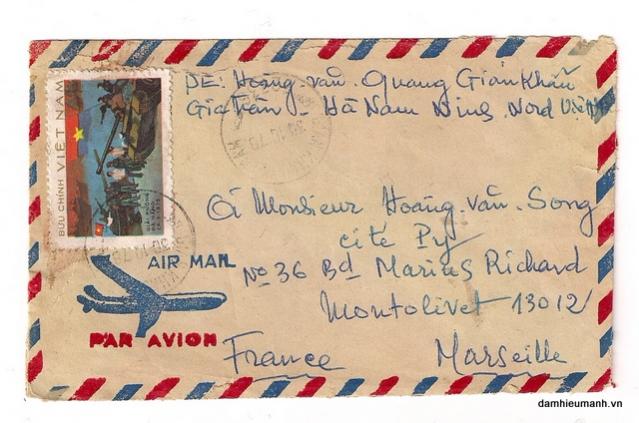 DE: Hoàng Văn Quang Gián Khẩu
Gia Trấn - Hà Nam Ninh, Nord
BƯU CHÍNH VIỆT NAM
à Monsieur Hoàng Văn Song
cité Py
AIR MAIL
N° 36 Bd Marius Richard
Montolivet 13012
PAR AVION
France Marseille
damhieumanh.vn